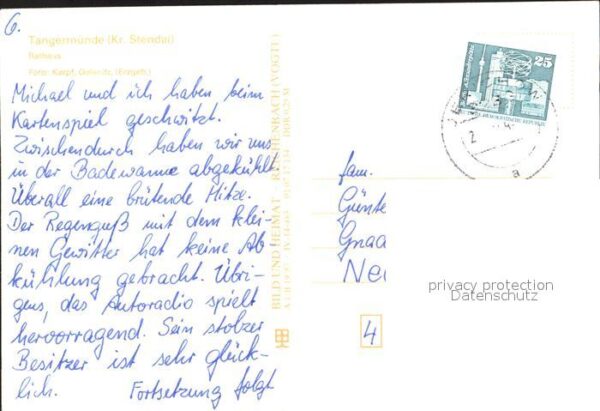 6.
Tangermünde (Kr. Stendal)
Rathaus
Foto: Karpf, Oelsnitz, (Erzgeb.)
Michael und ich haben beim
Kartenspiel geschwitzt.
Zwischendurch haben wir uns
in der Badewanne abgekühlt
Überall eine brütende Hitze.
Der Regenguß mit dem klei-
nen Gewitter hat keine Ab
kühlung gebracht. Übri-
gens, das Autoradio spielt
hervorragend. Sein stolzer
Besitzer ist sehr glück-
lich. Fortsetzung folgt
BILD UND HEIMAT REICHENBACH (VOGTL)
25
fam.
Günte
Gnaa
Neu
4
privacy protection
Datenschutz